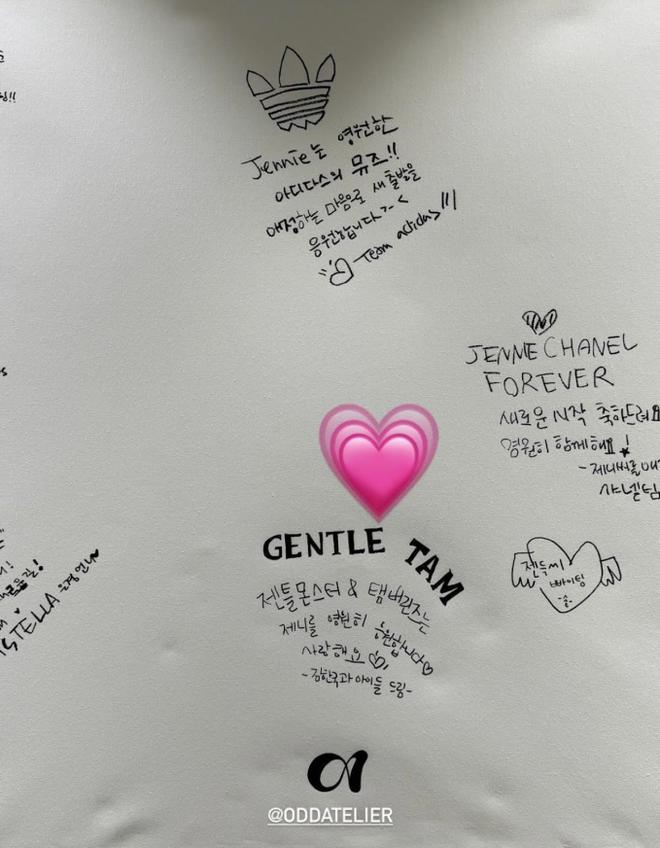 Jennie는 영원한
아디다스의 뮤즈!!
애정하는 마음으로 새 출발을
응원합니다 >.<
Team adidas!!!
JENNIE CHANEL
FOREVER
새로운 시작 축하드려요
영원히 함께해요!
샤넬팀
GENTLE TAM
젠틀몬스터 & 탬버린즈는
제니를 영원히 응원합니다
사랑해요
-김한국과 아이들 드림-
젠득씨
빠이팅
-솔-
STELLA 은경언니
@ODDATELIER